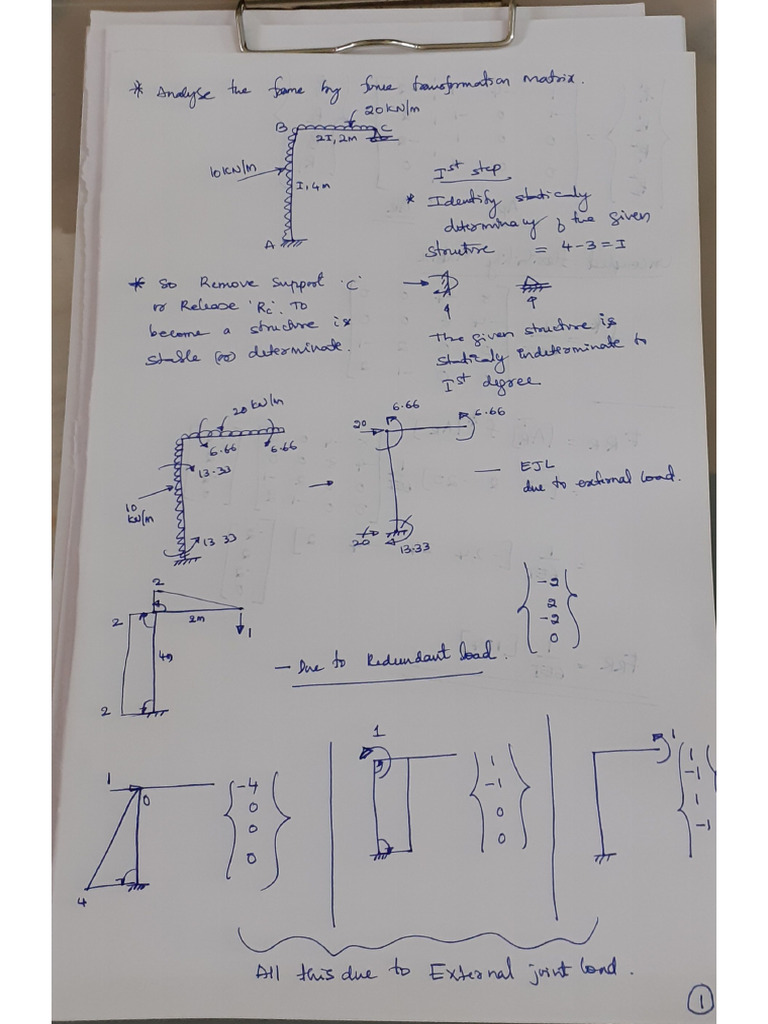 * Analyse the frame by force transformation matrix.
20 KN/m
B C
2I, 2m
10KN/m
I, 4m
A
Ist step
* Identify staticaly
determinacy of the given
structure = 4-3=1
* So Remove Support 'C'
or Release 'Rc'. To
become a structure is
stable (or) determinate.
The given structure is
staticaly indeterminate to
Ist degree
20 KN/m
6.66 6.66
13.33
10
KN/m
13.33
6.66 6.66
20
20
13.33
— EJL
due to external load.
2
2
2m
1
4m
2
— Due to Redundant load.
-2
2
-2
0
1
0
4
-4
0
0
0
1
1
-1
0
0
1
1
-1
1
-1
All this due to External joint load.
1